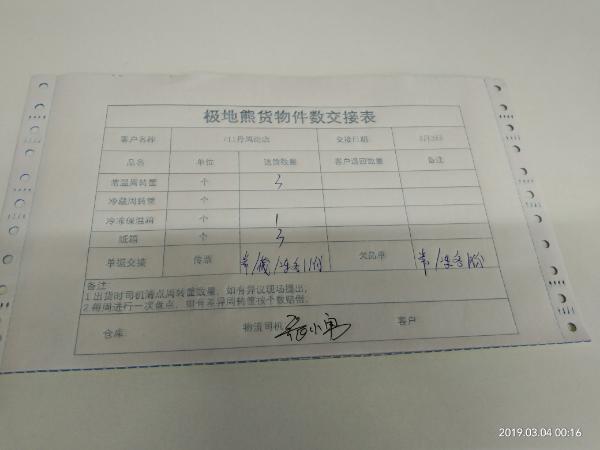 极地熊货物件数交接表
客户名称 交接日期:
品名 单位 送货数量 客户退回数量 备注
常温周转筐 个 3
冷藏周转筐 个
冷冻保温箱 个 1
纸箱 个 3
单据交接 传票 欠品单
备注:
1.出货时司机清点周转筐数量,如有异议现场提出,
2.每周进行一次盘点,如有差异周转筐按个数赔偿。
仓库: 物流司机: 客户:
2019.03.04 00:16